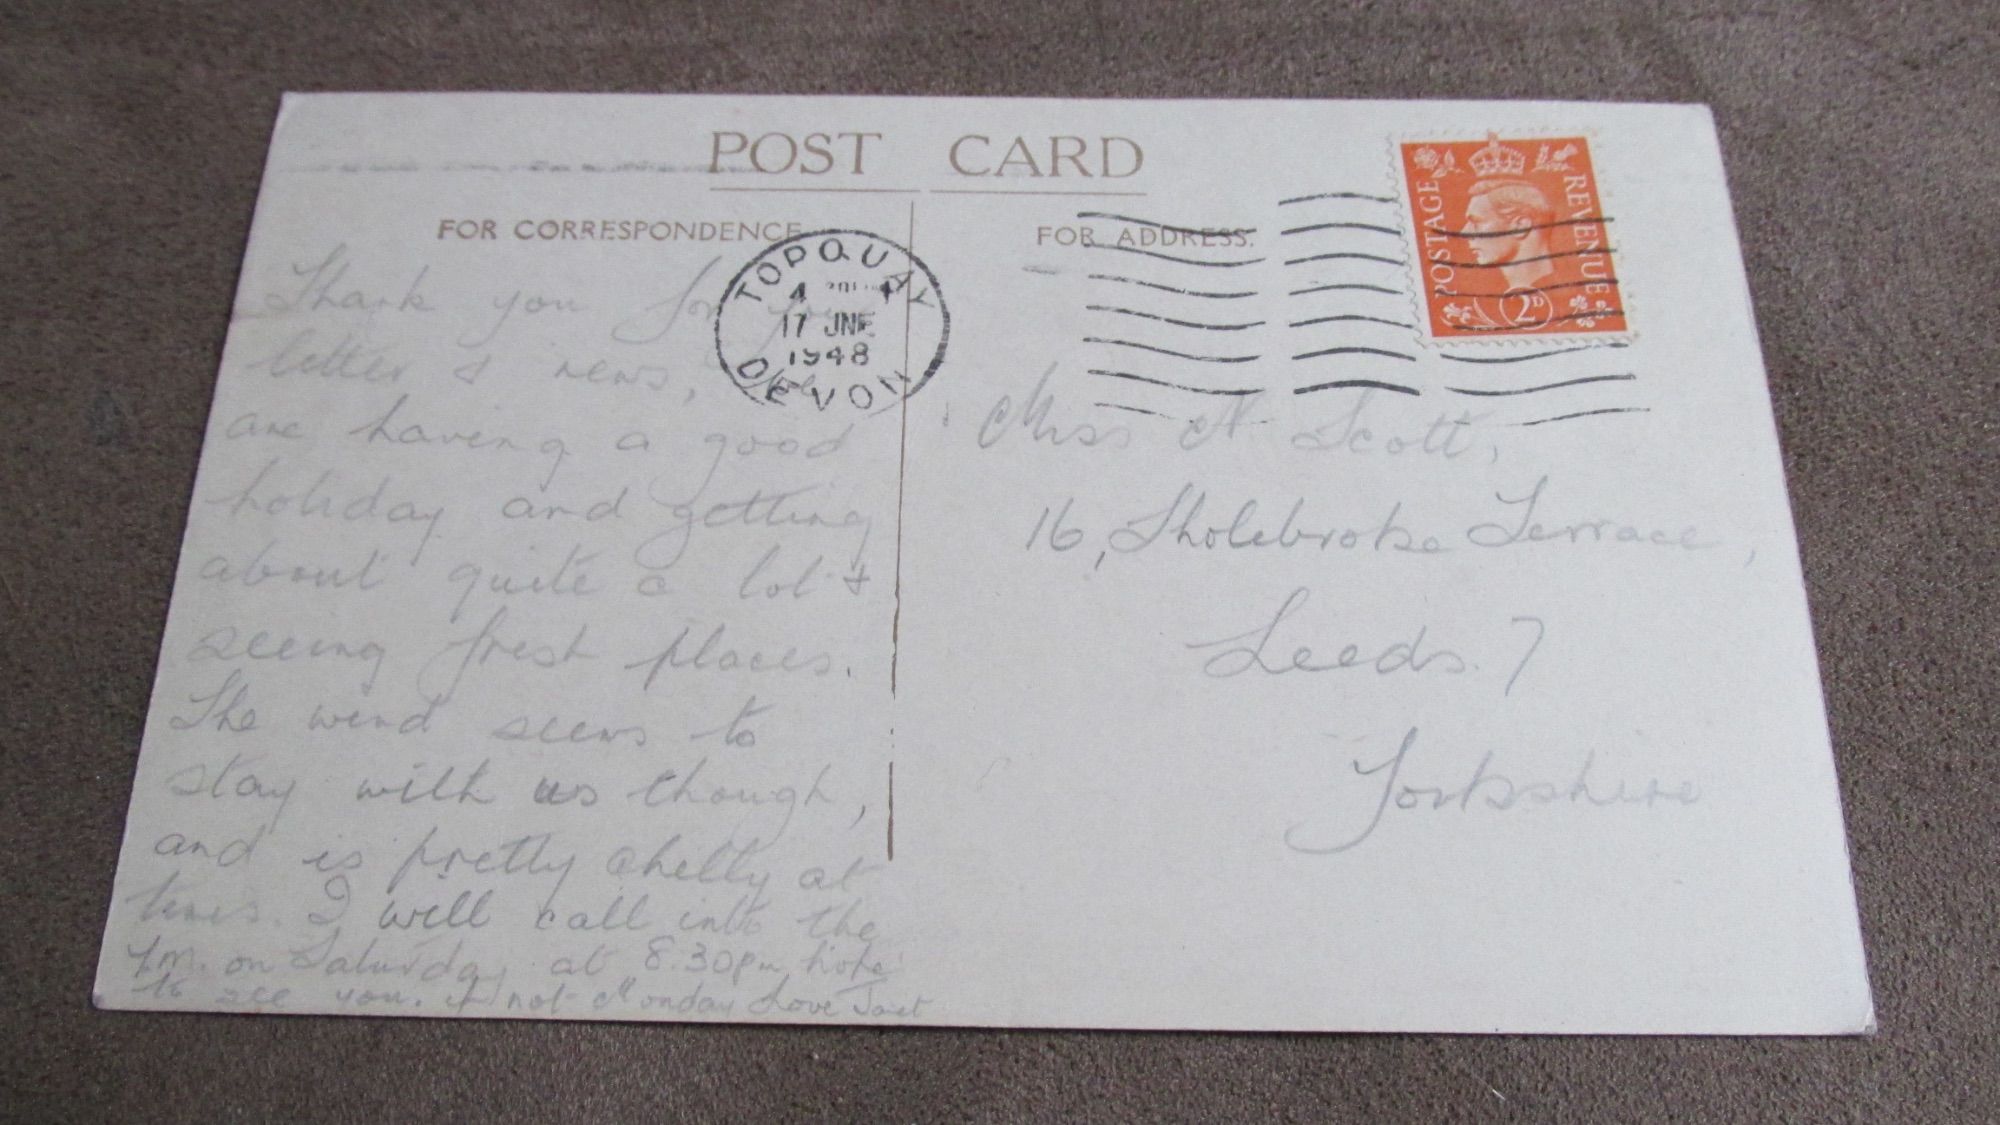 POST CARD
FOR CORRESPONDENCE
FOR ADDRESS.
POSTAGE
REVENUE
2D
TORQUAY
4
17 JNE
1948
DEVON
Thank you for your
letter & news, We
are having a good
holiday and getting
about quite a lot &
seeing fresh places.
The wind seems to
stay with us though,
and is pretty chilly at
times. I will call into the
Y.M. on Saturday at 8.30pm, hope
to see you. If not Monday Love Janet
Miss N Scott,
16, Sholebroke Terrace,
Leeds. 7
Yorkshire